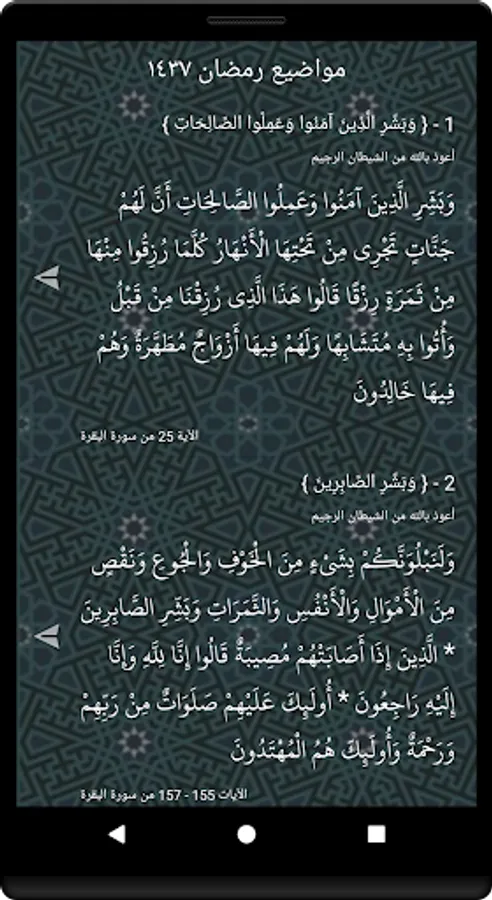 مواضيع رمضان ١٤٣٧
1 - { وَبَشِّرِ الَّذِينَ آمَنُوا وَعَمِلُوا الصَّالِحَاتِ }
أعوذ بالله من الشيطان الرجيم
وَبَشِّرِ الَّذِينَ آمَنُوا وَعَمِلُوا الصَّالِحَاتِ أَنَّ لَهُمْ
جَنَّاتٍ تَجْرِى مِنْ تَحْتِهَا الْأَنْهَارُ كُلَّمَا رُزِقُوا مِنْهَا
مِنْ ثَمَرَةٍ رِزْقًا قَالُوا هَذَا الَّذِى رُزِقْنَا مِنْ قَبْلُ
وَأُتُوا بِهِ مُتَشَابِهًا وَلَهُمْ فِيهَا أَزْوَاجٌ مُطَهَّرَةٌ وَهُمْ
فِيهَا خَالِدُونَ
الآية 25 من سورة البقرة
2 - { وَبَشِّرِ الصَّابِرِينَ }
أعوذ بالله من الشيطان الرجيم
وَلَنَبْلُوَنَّكُمْ بِشَىْءٍ مِنَ الْخَوْفِ وَالْجُوعِ وَنَقْصٍ
مِنَ الْأَمْوَالِ وَالْأَنْفُسِ وَالثَّمَرَاتِ وَبَشِّرِ الصَّابِرِينَ
* الَّذِينَ إِذَا أَصَابَتْهُمْ مُصِيبَةٌ قَالُوا إِنَّا لِلَّهِ وَإِنَّا
إِلَيْهِ رَاجِعُونَ * أُولَئِكَ عَلَيْهِمْ صَلَوَاتٌ مِنْ رَبِّهِمْ
وَرَحْمَةٌ وَأُولَئِكَ هُمُ الْمُهْتَدُونَ
الآيات 155 - 157 من سورة البقرة